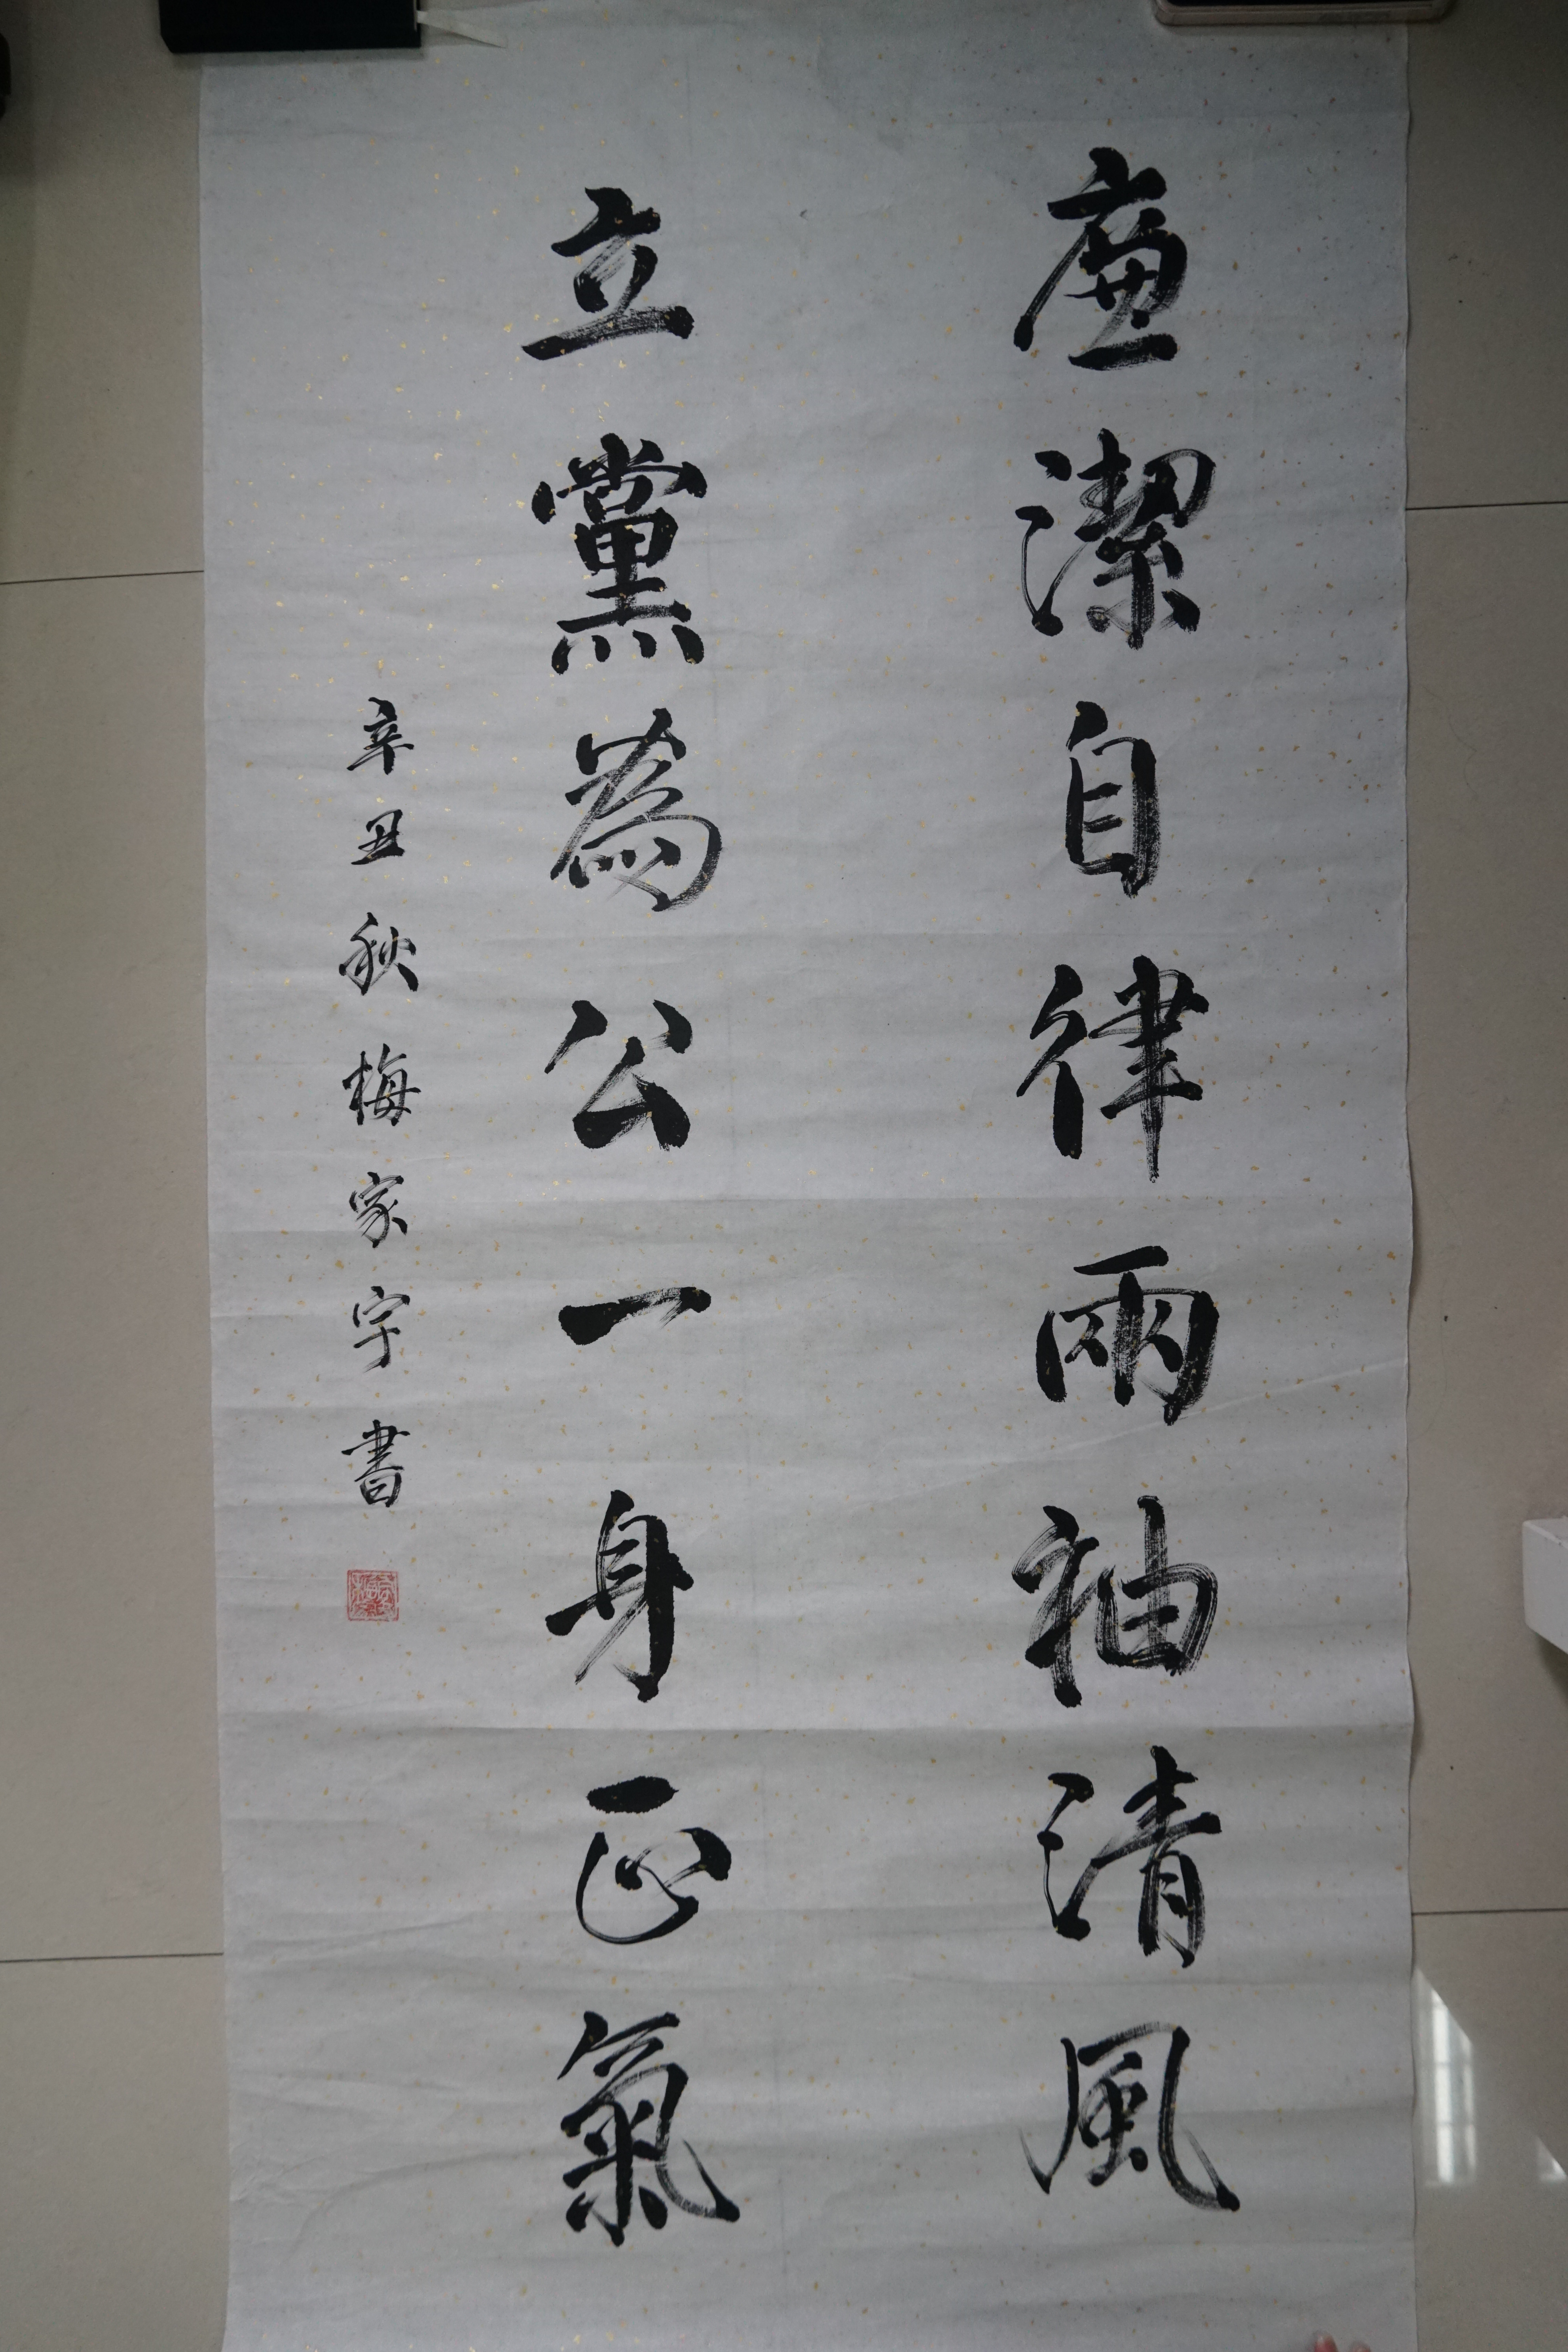 廉潔自律兩袖清風
立黨為公一身正氣
辛丑秋梅家字書